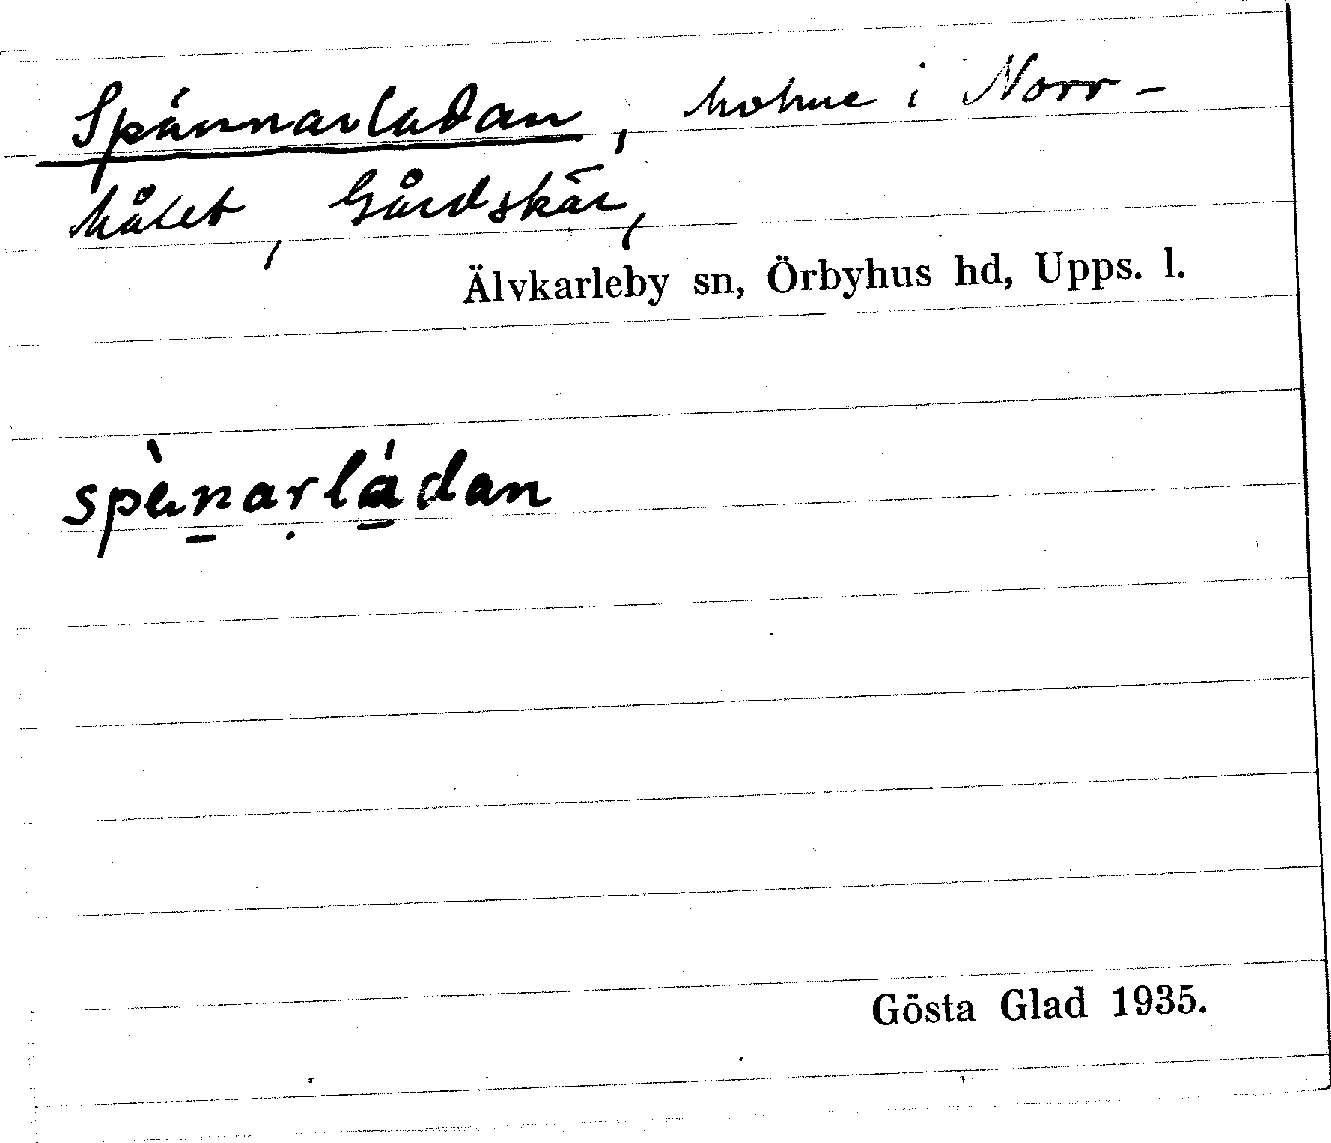 Spännarladan, holme i Norr-
hålet, Gårdskär,
Älvkarleby sn, Örbyhus hd, Upps. l.
spä̀narládan
Gösta Glad 1935.